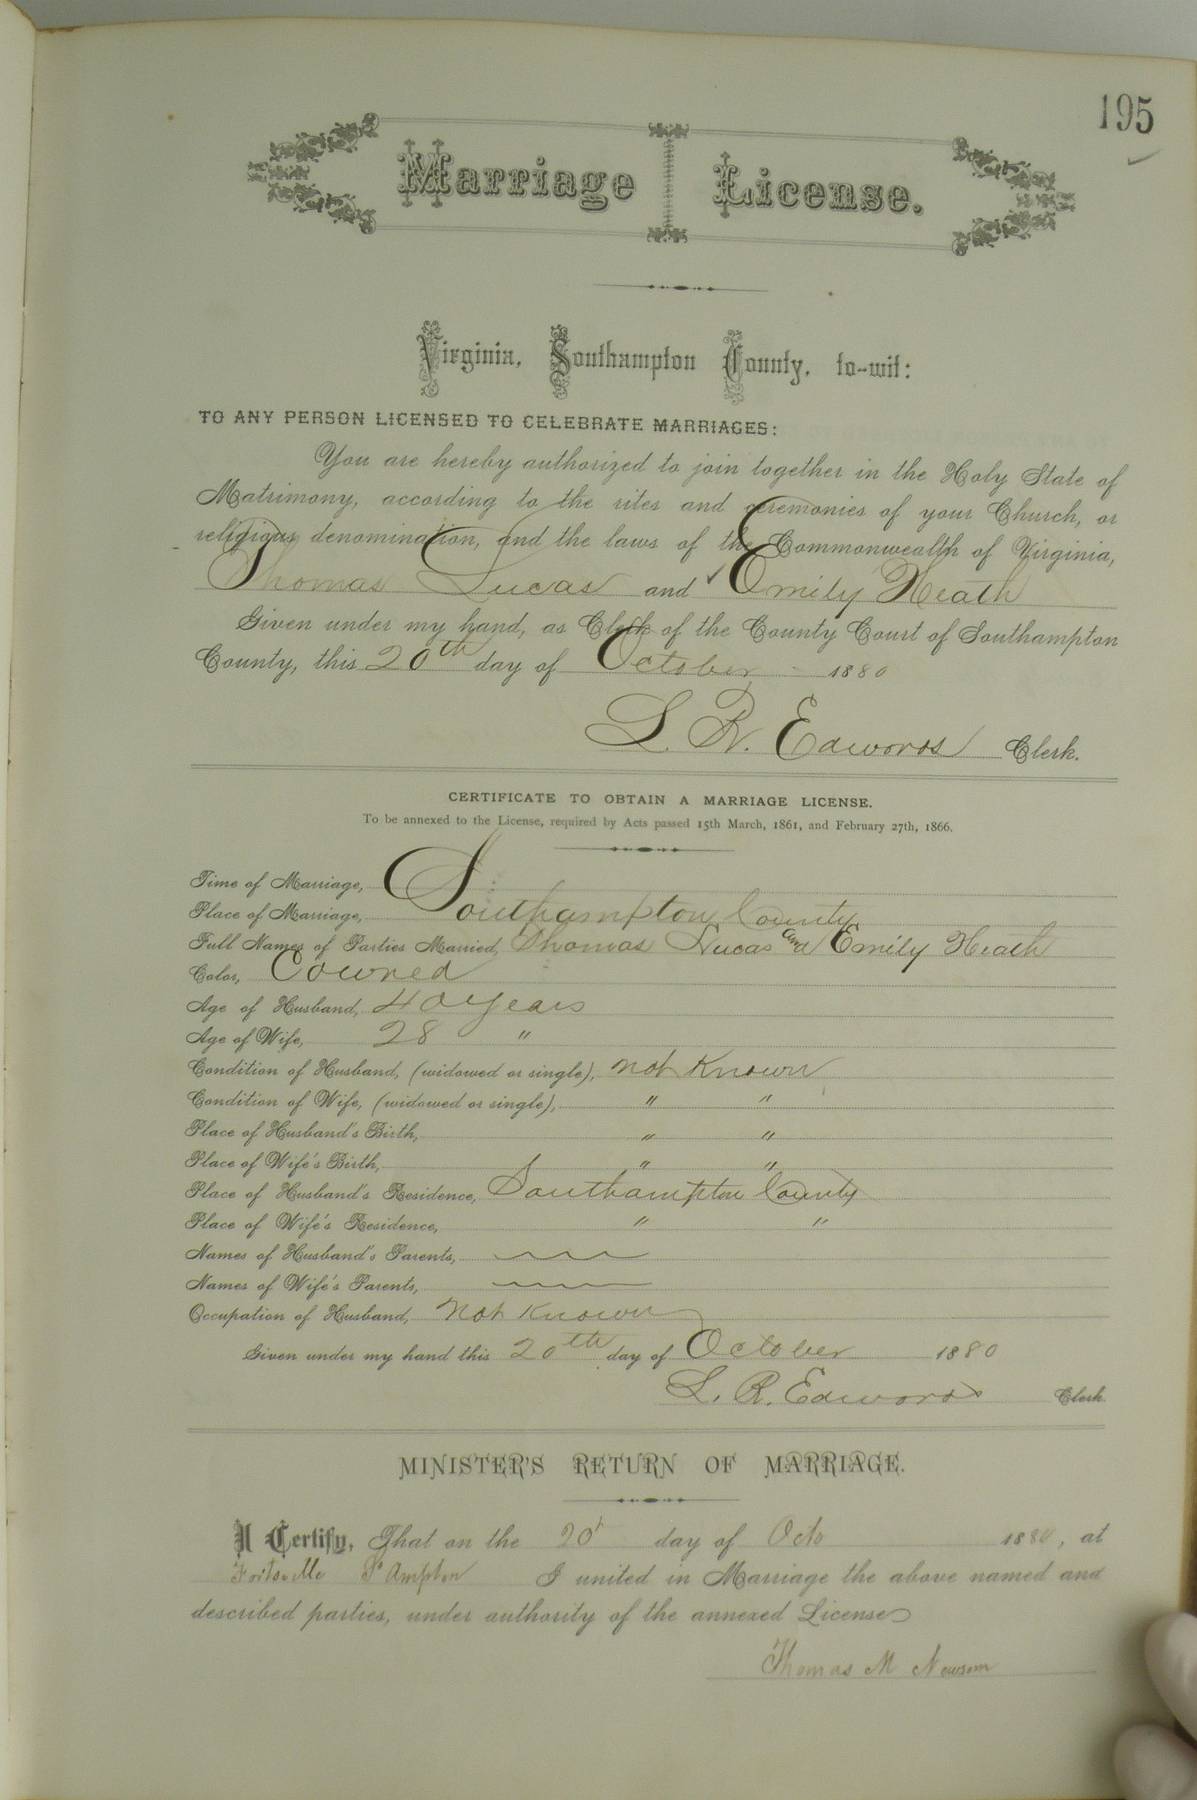 195
Marriage License.
Virginia, Southampton County, to-wit:
TO ANY PERSON LICENSED TO CELEBRATE MARRIAGES:
You are hereby authorized to join together in the Holy State of
Matrimony, according to the rites and ceremonies of your Church, or
religious denomination, and the laws of the Commonwealth of Virginia,
Thomas Lucas and Emily Heath
Given under my hand, as Clerk of the County Court of Southampton
County, this 20th day of October 1880
L. R. Edwards Clerk.
CERTIFICATE TO OBTAIN A MARRIAGE LICENSE.
To be annexed to the License, required by Acts passed 15th March, 1861, and February 27th, 1866.
Time of Marriage,
Place of Marriage, Southampton County
Full Names of Parties Married, Thomas Lucas and Emily Heath
Color, Colored
Age of Husband, 40 years
Age of Wife, 28 "
Condition of Husband, (widowed or single), not Known
Condition of Wife, (widowed or single), " "
Place of Husband's Birth, " "
Place of Wife's Birth, " "
Place of Husband's Residence, Southampton County
Place of Wife's Residence, " "
Names of Husband's Parents,
Names of Wife's Parents,
Occupation of Husband, not Known
Given under my hand this 20th day of October 1880
L. R. Edwards Clerk
MINISTER'S RETURN OF MARRIAGE.
I Certify, That on the 20th day of Octo 1880, at
S Ampton I united in Marriage the above named and
described parties, under authority of the annexed License
Thomas M Newsom